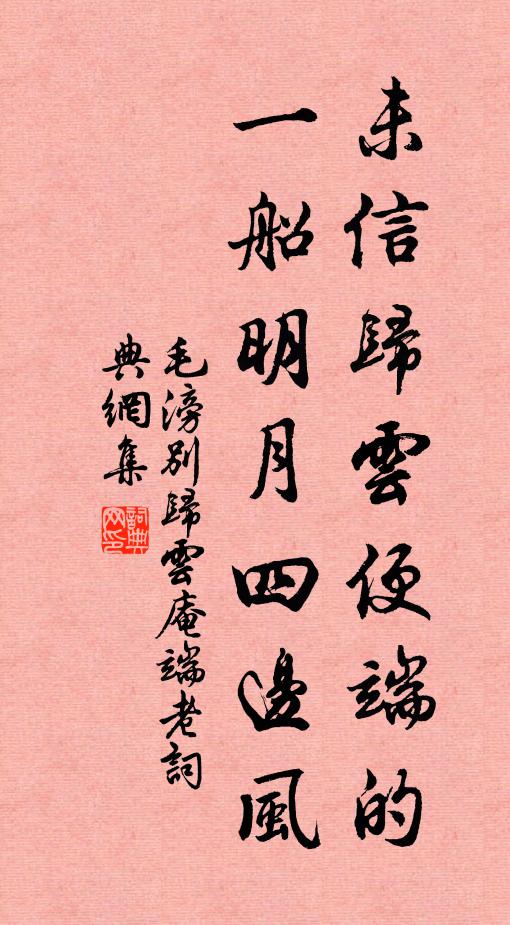 未信歸雲便端的
一船明月四邊風
毛滂別歸雲庵端老詞
典網集
詞典
网印